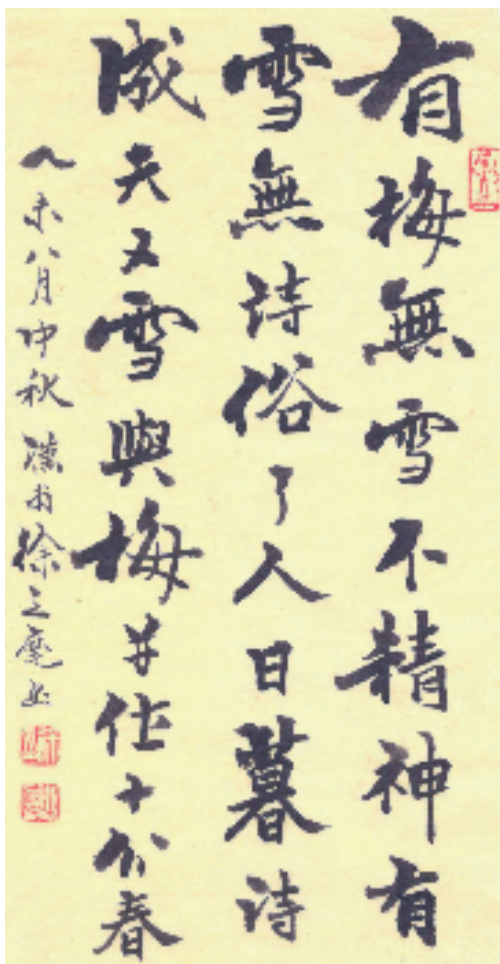 有梅無雪不精神有
雪無詩俗了人日暮詩
成天又雪與梅并作十分春
未八月仲秋徐